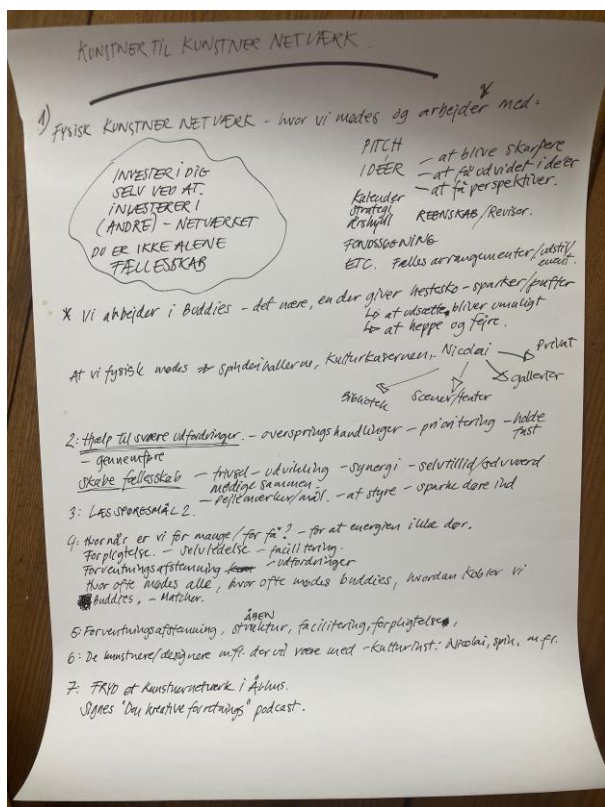 KUNSTNER TIL KUNSTNER NETVÆRK.
1) FYSISK KUNSTNER NETVÆRK - hvor vi mødes og arbejder * med:
INVESTER I DIG
SELV VED AT.
INVESTERER I
(ANDRE) - NETVÆRKET
DU ER IKKE ALENE
FÆLLESSKAB
PITCH
IDÉER - at blive skarpere
- at få udvidet ideer
- at få perspektiver.
Kalender
strategi
årshjul
REGNSKAB/Revisor.
FONDSSØGNING
ETC. Fælles arrangementer/udstil/
event.
* Vi arbejder i Buddies - det nære, en der giver hestesko - sparker/puffer
↳ at udsætte, bliver umuligt
↳ at heppe og fejre.
At vi fysisk mødes → spinderihallerne, Kulturkasernen, Nicolai → Privat
Bibliotek Scener/teater Gallerier
2: Hjælp til svære udfordringer. - overspringshandlinger - prioritering - holde fast
- gennemføre
skabe fællesskab - trivsel - udvikling - synergi - selvtillid/selvværd
modige sammen -
- pejlemærker/mål. - at styre - sparke døre ind
3: LÆS SPØRGSMÅL 2.
4: Hvornår er vi for mange/for få? - for at energien ikke dør.
Forpligtelse. - selvledelse - facilitering.
Forventningsafstemning - udfordringer
Hvor ofte mødes alle, hvor ofte mødes buddies, hvordan kobler vi
buddies. - Matcher.
5: Forventningsafstemning, ÅBEN struktur, facilitering, forpligtelse,
6: De kunstnere/designere m.fl. der vil være med - Kulturinst: Nicolai, spin. m.fl.
7: FRYD et Kunstnernetværk i Århus.
Signes "Den kreative forretnings" podcast.